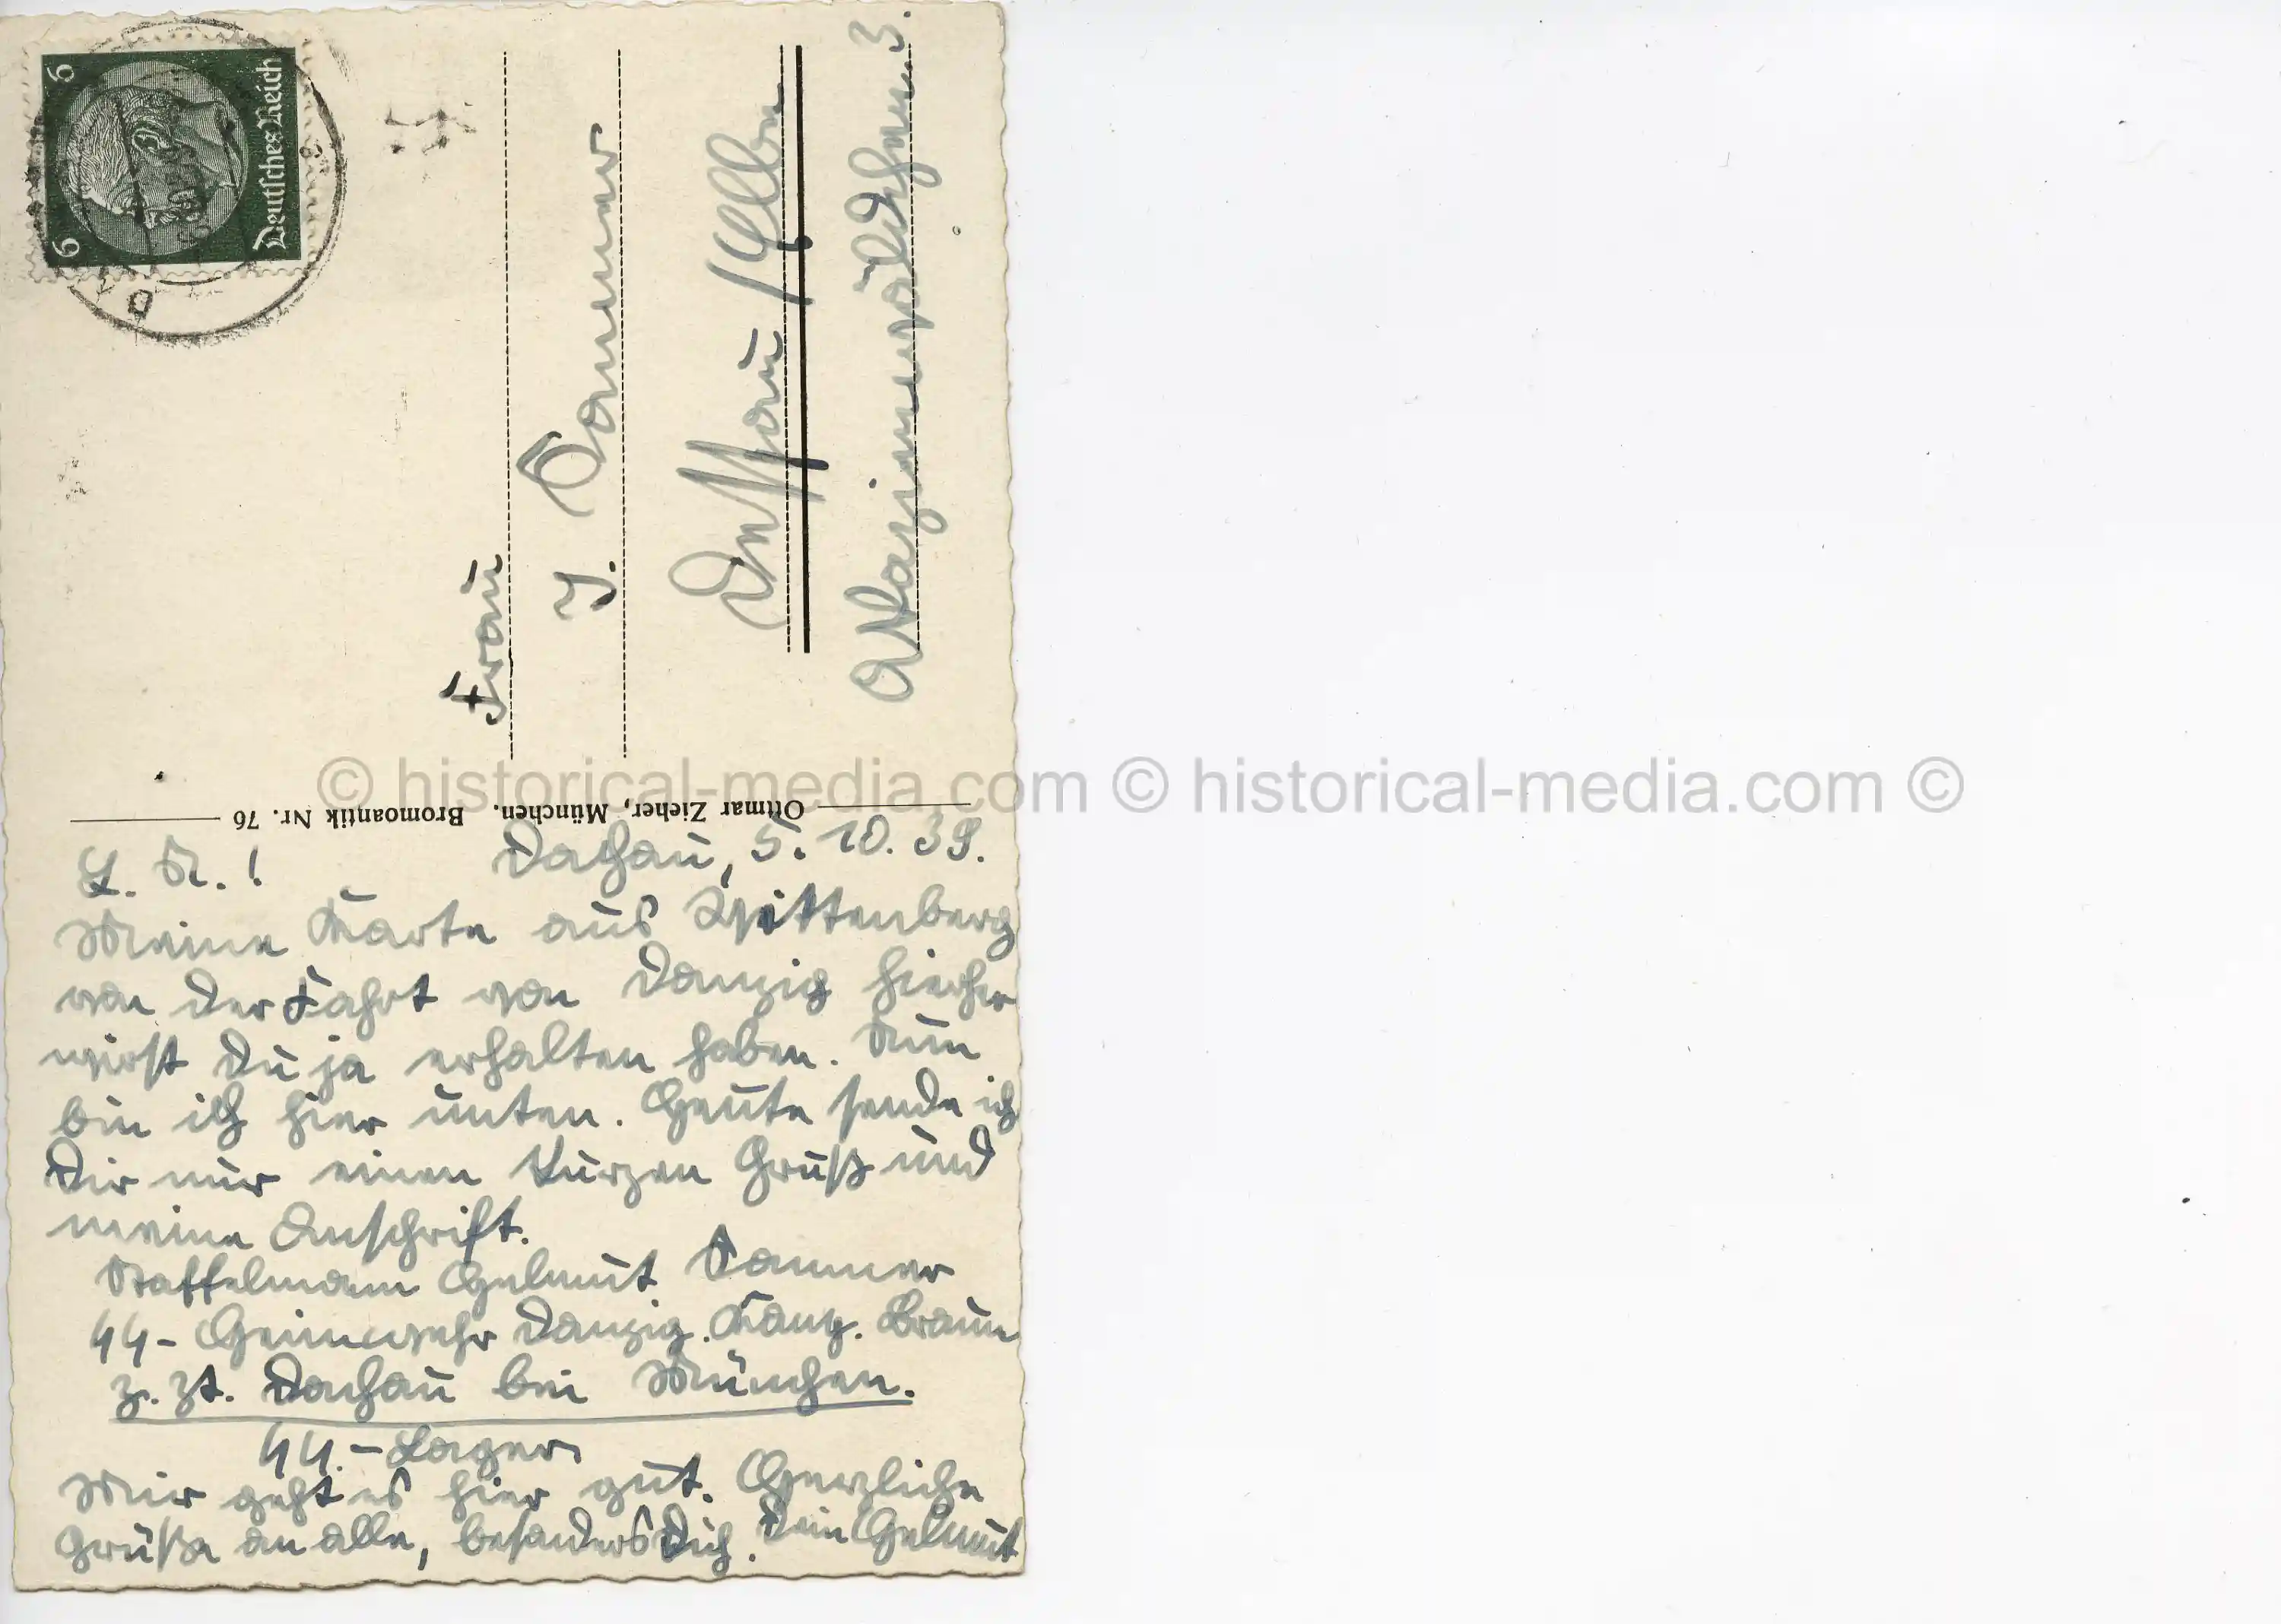 6 6
Deutsches Reich
Frau
J. Dammer
Dessau / Elbe
Wazinnwäldchen 3.
© historical-media.com © historical-media.com ©
Ottmar Zieher, München. Bromoantik Nr. 76
L. R.! Dachau, 5. 10. 39.
Meine Karte aus Wittenberg
von der Fahrt von Danzig hierher
wirst Du ja erhalten haben. Nun
bin ich hier unten. Heute sende ich
Dir nur einen kurzen Gruß und
meine Anschrift.
Staffelmann Helmut Dammer
SS-Heimwehr Danzig. Braun
z. Zt. Dachau bei München.
SS.-Lager
Mir geht es hier gut. Herzliche
Grüße an alle, besonders Dich. Dein Helmut